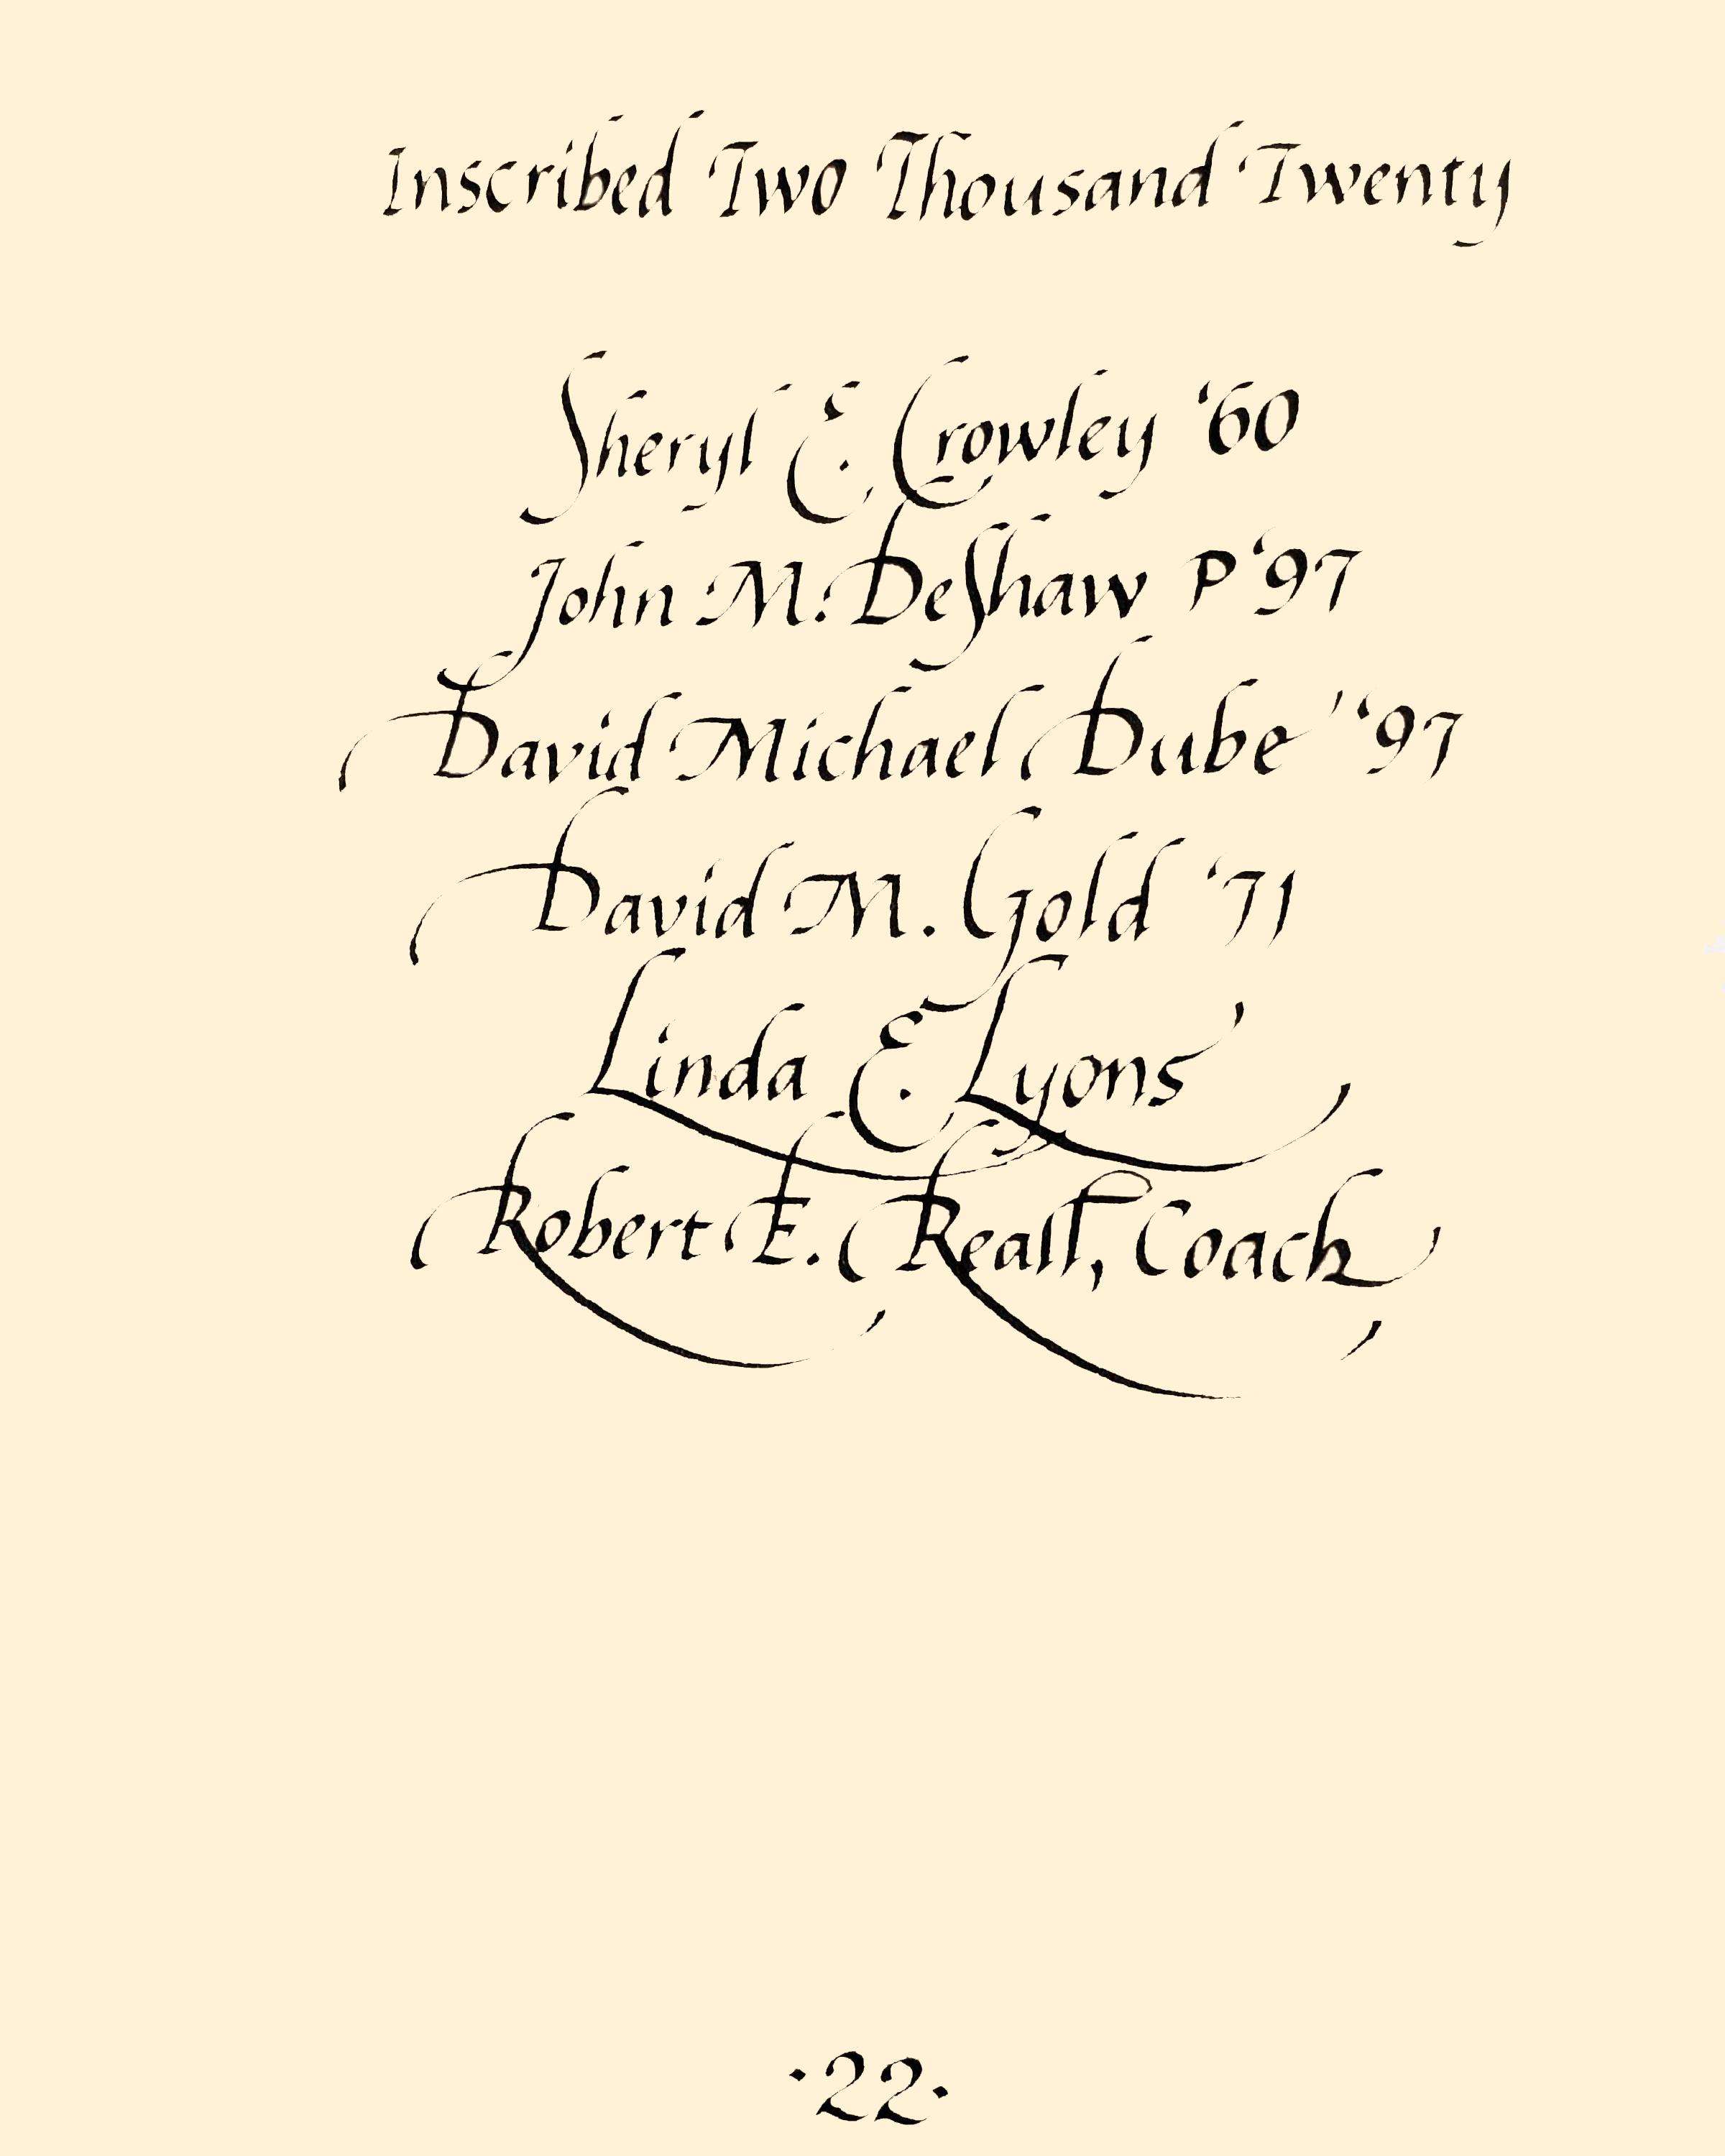 Inscribed Two Thousand Twenty
Sheryl E. Crowley '60
John M. DeShaw P'97
David Michael Dube '97
David M. Gold '71
Linda E. Lyons
Robert E. Reall, Coach
·22·